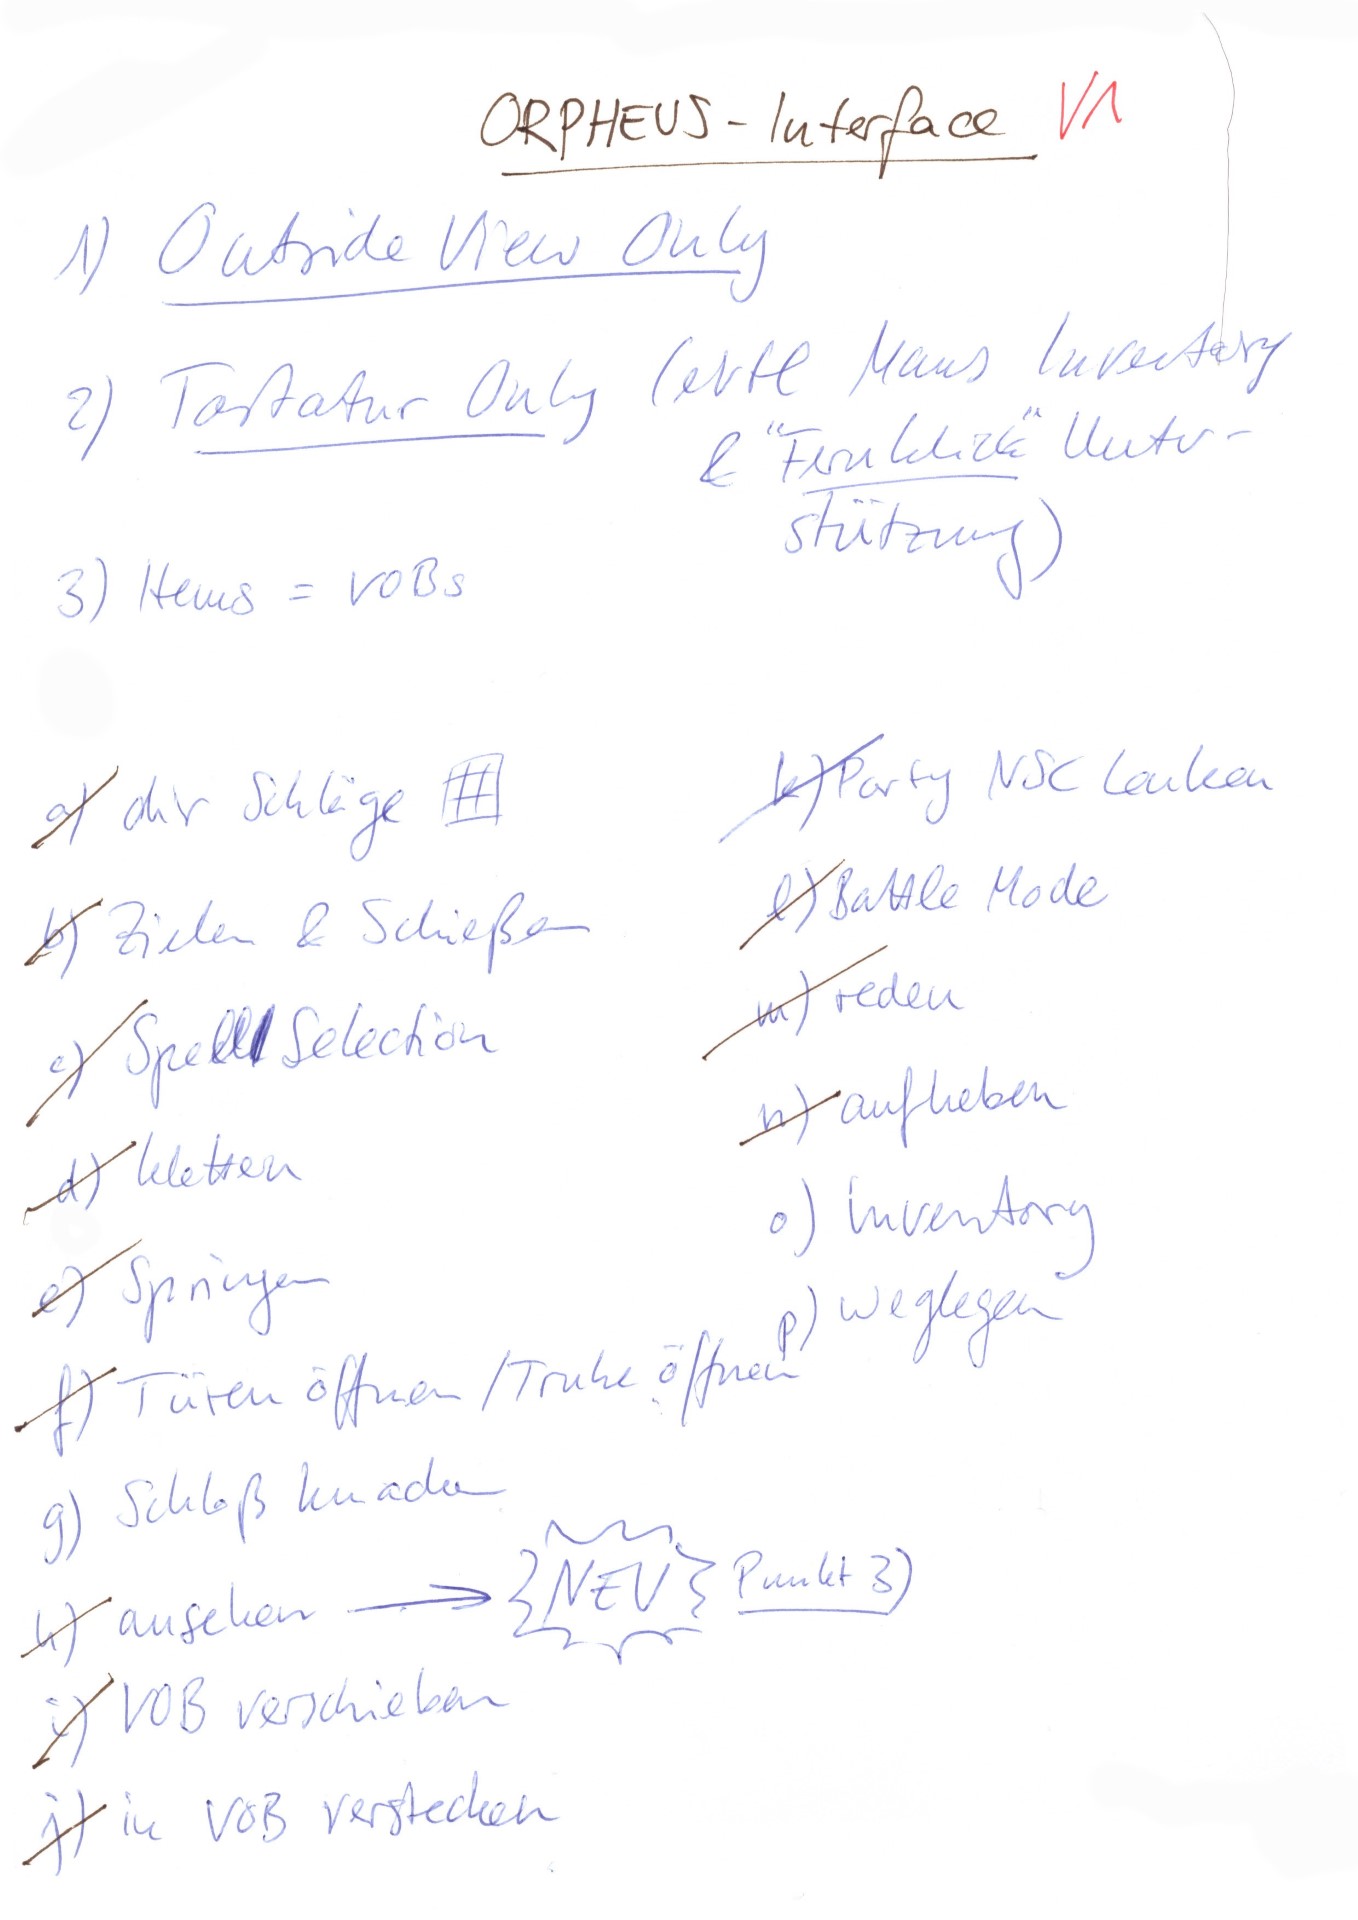 ORPHEUS - Interface V1
1) Outside View Only
2) Tastatur Only (evtl Maus Inventory
& "Fernklick" Unter-
stützung)
3) Items = VOBs
a) dir Schläge
b) Zielen & Schießen
c) Spell Selection
d) klettern
e) Springen
f) Türen öffnen / Truhe öffnen
g) Schloß knacken
h) ansehen → NEU Punkt 3)
i) VOB verschieben
j) in VOB verstecken
k) Party NSC lenken
l) Battle Mode
m) reden
n) aufheben
o) inventory
p) weglegen